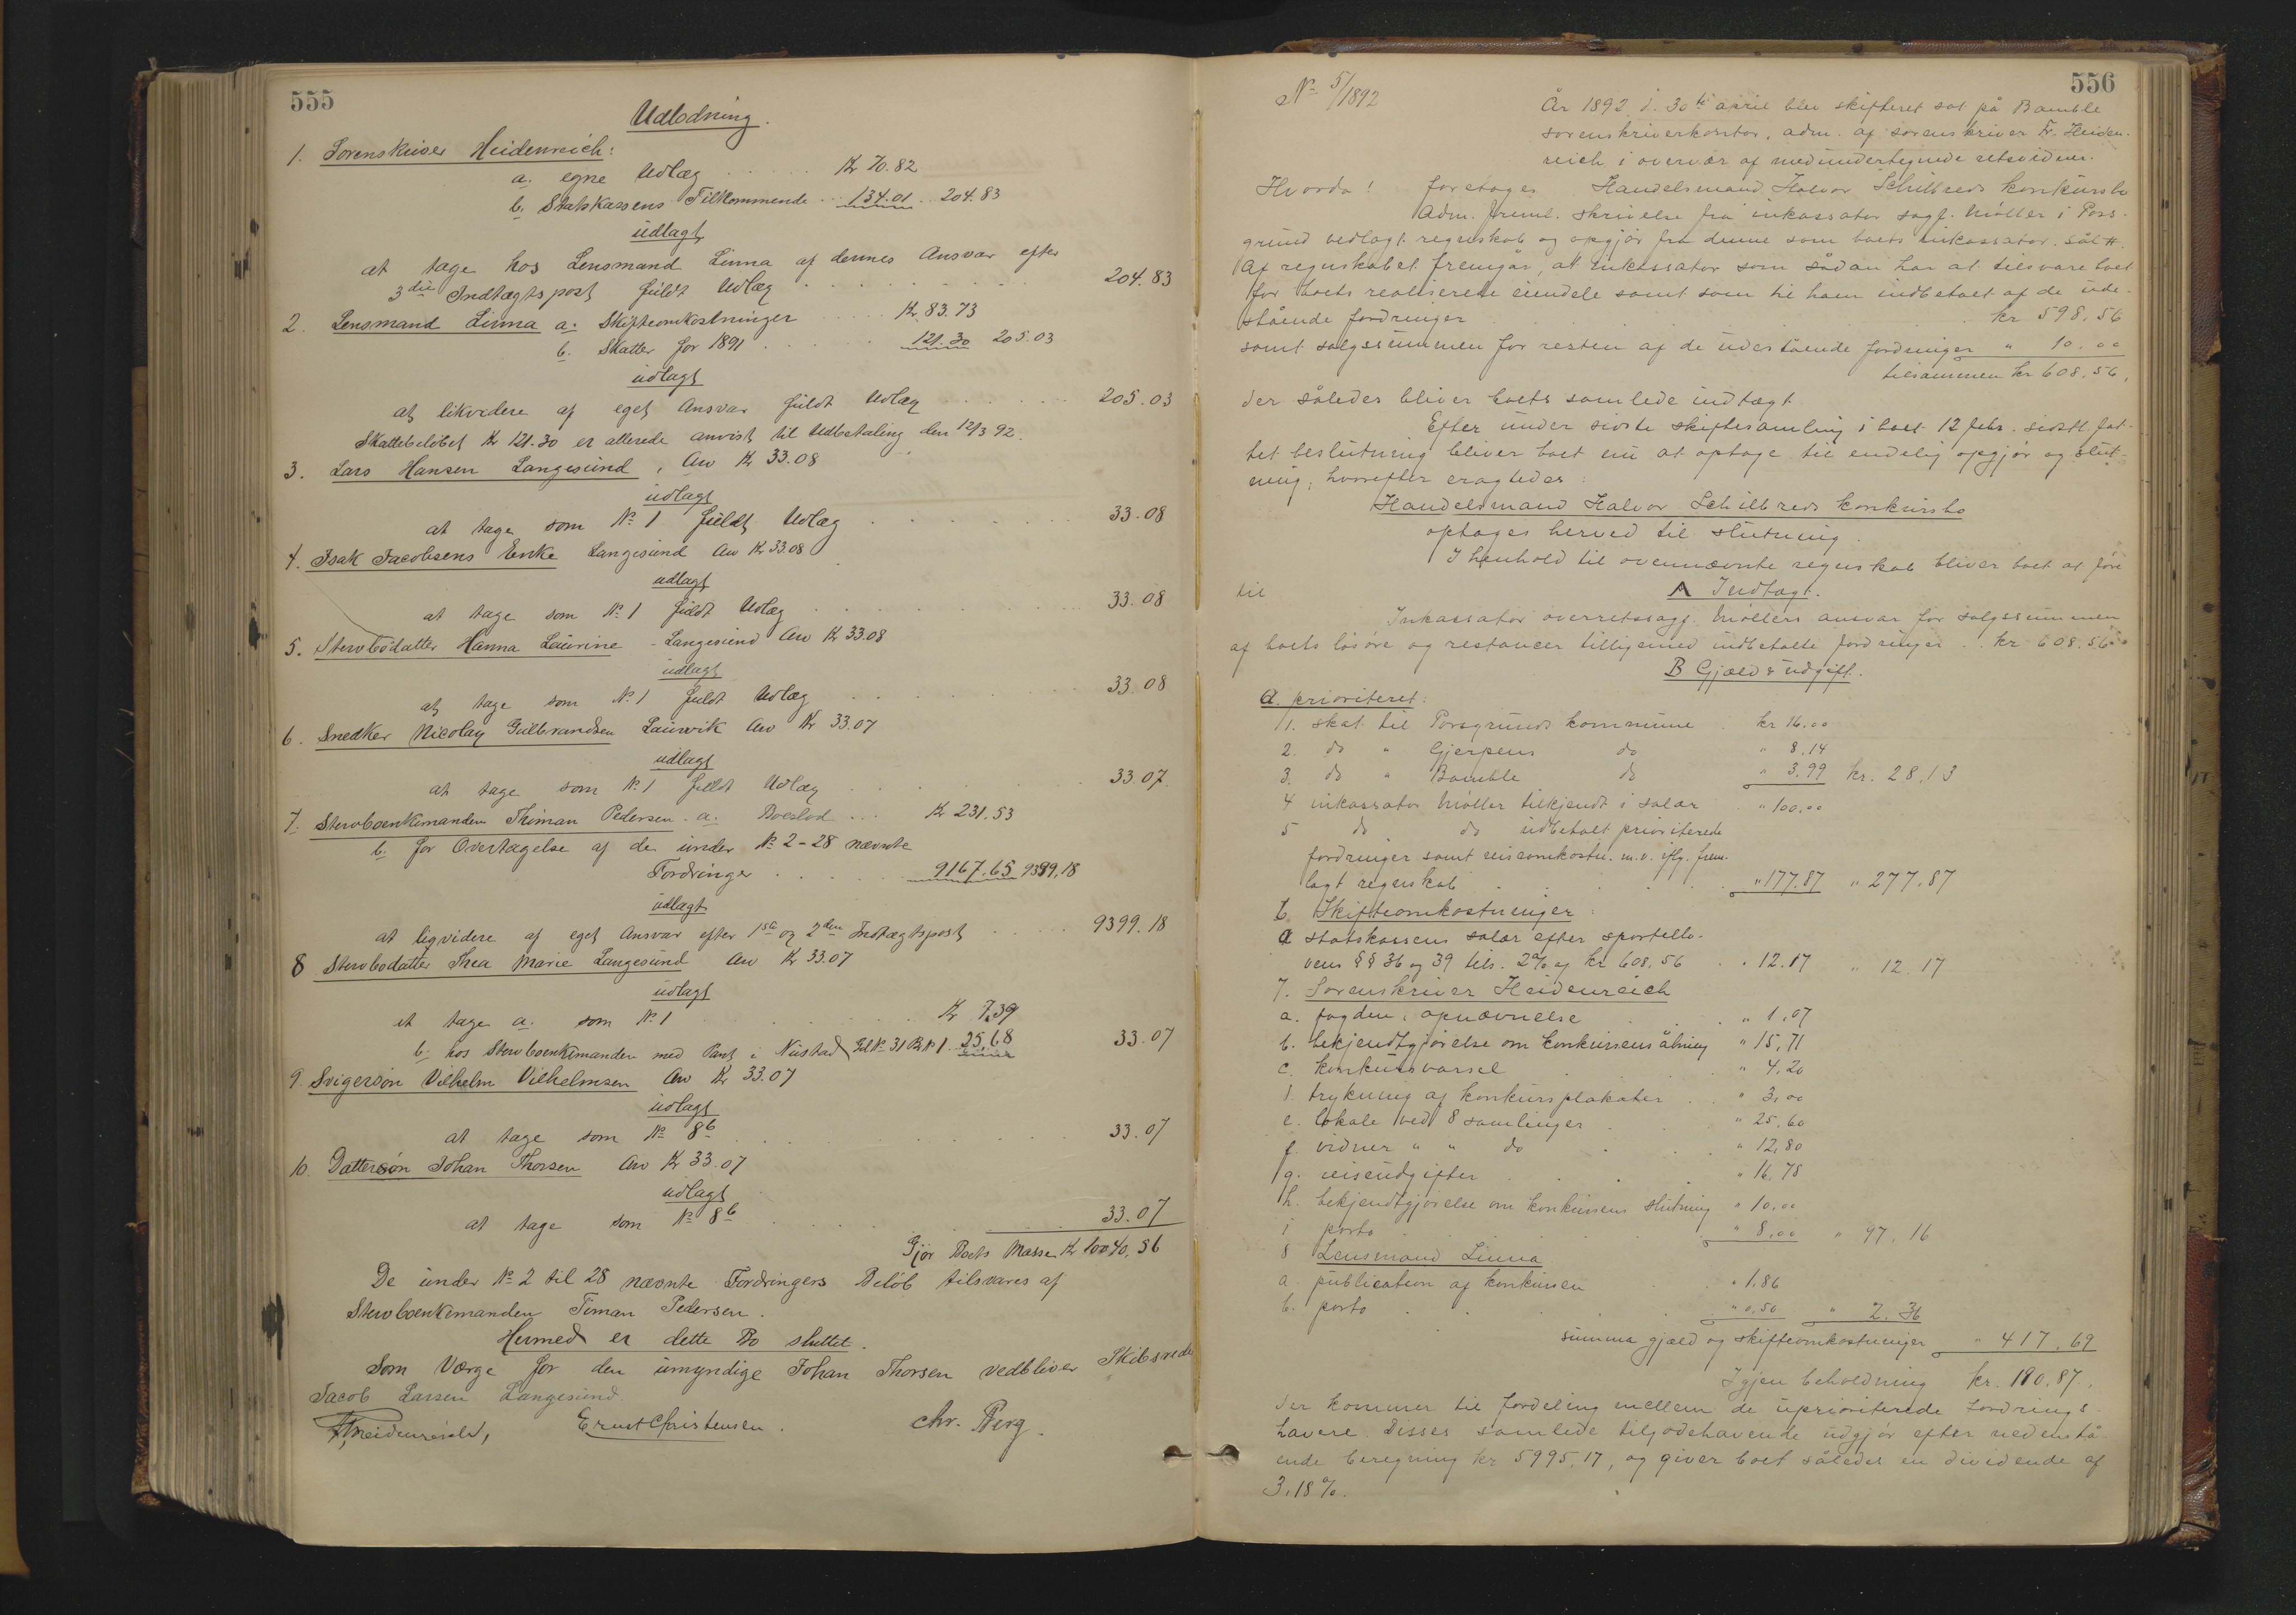 555
Udlodning.
1. Sorenskriver Heidenreich:
a. egne Udlæg ..... Kr 70.82
b. Statskassens Tilkommende .. 134.01 .. 204.83
udlagt
at tage hos Lensmand Linna af dennes Ansvar efter
3die Indtægtspost fuldt Udlæg ....... 204.83
2. Lensmand Linna a. Skifteomkostninger .... Kr. 83.73
b. Skatter for 1891 ...... 121.30 205.03
udlagt
at likvidere af eget Ansvar fuldt Udlæg ..... 205.03
Skattebeløbet Kr 121.30 er allerede anvist til Udbetaling den 12/3 92.
3. Lars Hansen Langesund, Arv Kr 33.08
udlagt
at tage som No 1 fuldt Udlæg ....... 33.08
4. Isak Jacobsens Enke Langesund Arv Kr 33.08
udlagt
at tage som No 1 fuldt Udlæg ....... 33.08
5. Stervbodatter Hanna Laurine - Langesund Arv Kr 33.08
udlagt
at tage som No 1 fuldt Udlæg ....... 33.08
6. Snedker Nicolay Gulbrandsen Laurvik Arv Kr 33.07
udlagt
at tage som No 1 fuldt Udlæg ....... 33.07.
7. Stervboenkemanden Thiman Pedersen. a. Boeslod ... Kr 231.53
b. for Overtagelse af de under No 2-28 nævnte
Fordringer ...... 9167.65 9399.18
udlagt
at liqvidere af eget Ansvar efter 1ste og 2den Indtægtspost ..... 9399.18
8 Stervbodatter Thea Marie Langesund Arv Kr 33.07
udlagt
at tage a. som No 1 ....... Kr 7.39
b. hos Stervboenkemanden med Pant i Nustad Gd No 31 B No 1. 25.68 33.07
9. Svigersøn Vilhelm Vilhelmsen Arv Kr 33.07
udlagt
at tage som No 8b ....... 33.07
10. Dattersøn Johan Thorsen Arv Kr 33.07
udlagt
at tage som No 8b ....... 33.07
Gjør Boets Masse Kr 10040.56
De under No 2 til 28 nævnte Fordringers Beløb tilsvares af
Stervboenkemanden Timan Pedersen.
Hermed er dette Bo sluttet.
Som Værge for den umyndige Johan Thorsen vedbliver Skibsreder
Jacob Larsen Langesund.
Fr. Heidenreich, Ernst Christensen. Chr. Berg.
556
No 5/1892
År 1892 d. 30te april blev skifteret sat på Bamble
sorenskriverkontor, adm. af sorenskriver Fr. Heiden-
reich i overvær af medundertegnede retsvidner.
Hvorda! foretages Handelsmand Halvor Schilbreds konkursbo
Adm. freml. skrivelse fra inkassator sagf. Møller i Pors-
grund vedlagt regnskab og opgjør fra denne som boets inkassator.
Af regnskabet fremgår, at inkassator som sådan har at tilsvare boet
for boets realiserede eiendele samt som til ham indbetalt af de ude-
stående fordringer kr 598.56
samt salgssummen for resten af de udestående fordringer " 10.00
tilsammen kr 608.56,
der således bliver boets samlede indtægt.
Efter under sidste skiftesamling i boet 12 febr. sidstl. fat-
tet beslutning bliver boet nu at optage til endelig opgjør og slut-
ning, hvorefter eragtedes:
Handelsmand Halvor Schilbreds konkursbo
optages herved til slutning.
I henhold til ovennævnte regnskab bliver boet at føre
til
A Indtægt.
Inkassator overretssagf. Møllers ansvar for salgssummen
af boets løsøre og restancer tilligemed indbetalte fordringer .. kr 608.56
B Gjæld & udgift.
a. prioriteret:
1. skat til Porsgrunds kommune . kr 16.00
2. do " Gjerpens do " 8.14
3. do " Bamble do " 3.99 kr. 28.13
4 inkassator Møller tilkjendt i salær . " 100.00
5 do do udbetalt prioriterede
fordringer samt reiseomkostn. m.v. iflg. frem-
lagt regnskab ..... " 177.87 " 277.87
b. Skifteomkostninger:
a statskassens salær efter sportello-
vens §§ 36 og 39 tils. 2% af kr 608.56 . " 12.17 " 12.17
7. Sorenskriver Heidenreich
a. fogden, opnævnelse . . " 1.07
b. bekjendtgjørelse om konkursens åbning " 15.71
c. konkursvarsel . . " 4.20
d. trykning af konkursplakater .. " 3.00
e. lokale ved 8 samlinger . . " 25.60
f. vidner " " do . . " 12.80
g. reiseudgifter . . . " 16.78
h. bekjendtgjørelse om konkursens slutning " 10.00
i porto . . " 8.00 " 97.16
8 Lensmand Linna
a. publication af konkursen . . " 1.86
b. porto . . . . " 0.50 " 2.36
summa gjæld og skifteomkostninger " 417.69
Igjen beholdning kr. 190.87.
der kommer til fordeling mellem de uprioriterede fordrings-
havere. Disses samlede tilgodehavende udgjør efter nedenstå-
ende beregning kr 5995.17, og giver boet således en dividende af
3.18%.